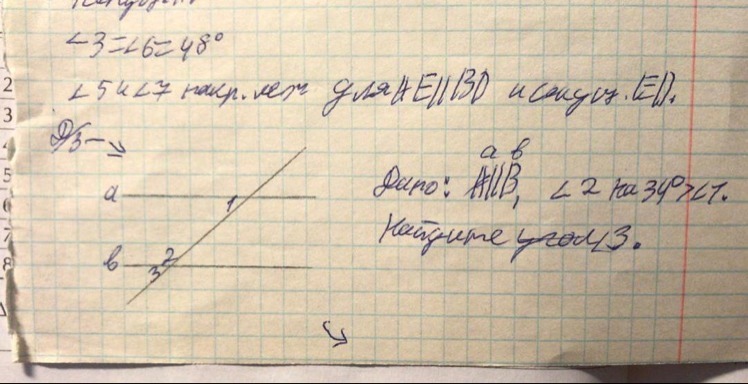 ∠3=∠6=48°
∠5 и ∠7 накр. леж для AE||BD и секущ. ED.
Д/з →
a
1
b
2
3
a b
Дано: A||B, ∠2 на 34° > ∠1.
Найдите угол 3.